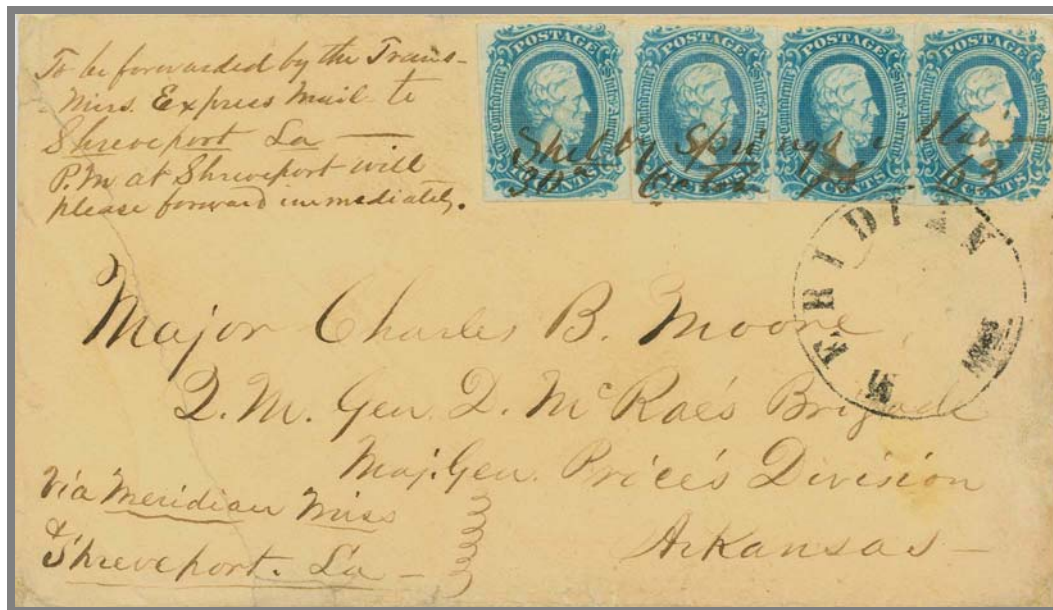 To be forwarded by the Trans-
Miss. Express Mail to
Shreveport La —
P.M at Shreveport will
please forward immediately.
POSTAGE POSTAGE POSTAGE POSTAGE
The Confederate States of America
TEN CENTS
Shelby Springs Ala
30th Octob 1863
MERIDIAN
MISS
Major Charles B. Moore
Q.M. Gen D. McRae's Brigade
Maj. Gen. Price's Division
Arkansas —
Via Meridian Miss
& Shreveport. La —